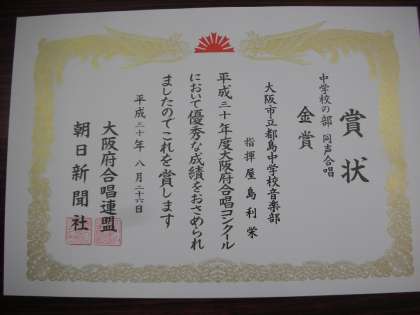 賞状
中学校の部 同声合唱
金賞
大阪市立都島中学校音楽部
指揮 屋島利栄
平成三十年度大阪府合唱コンクール
において優秀な成績をおさめられ
ましたのでこれを賞します
平成三十年 八月二十六日
大阪府合唱連盟
朝日新聞社